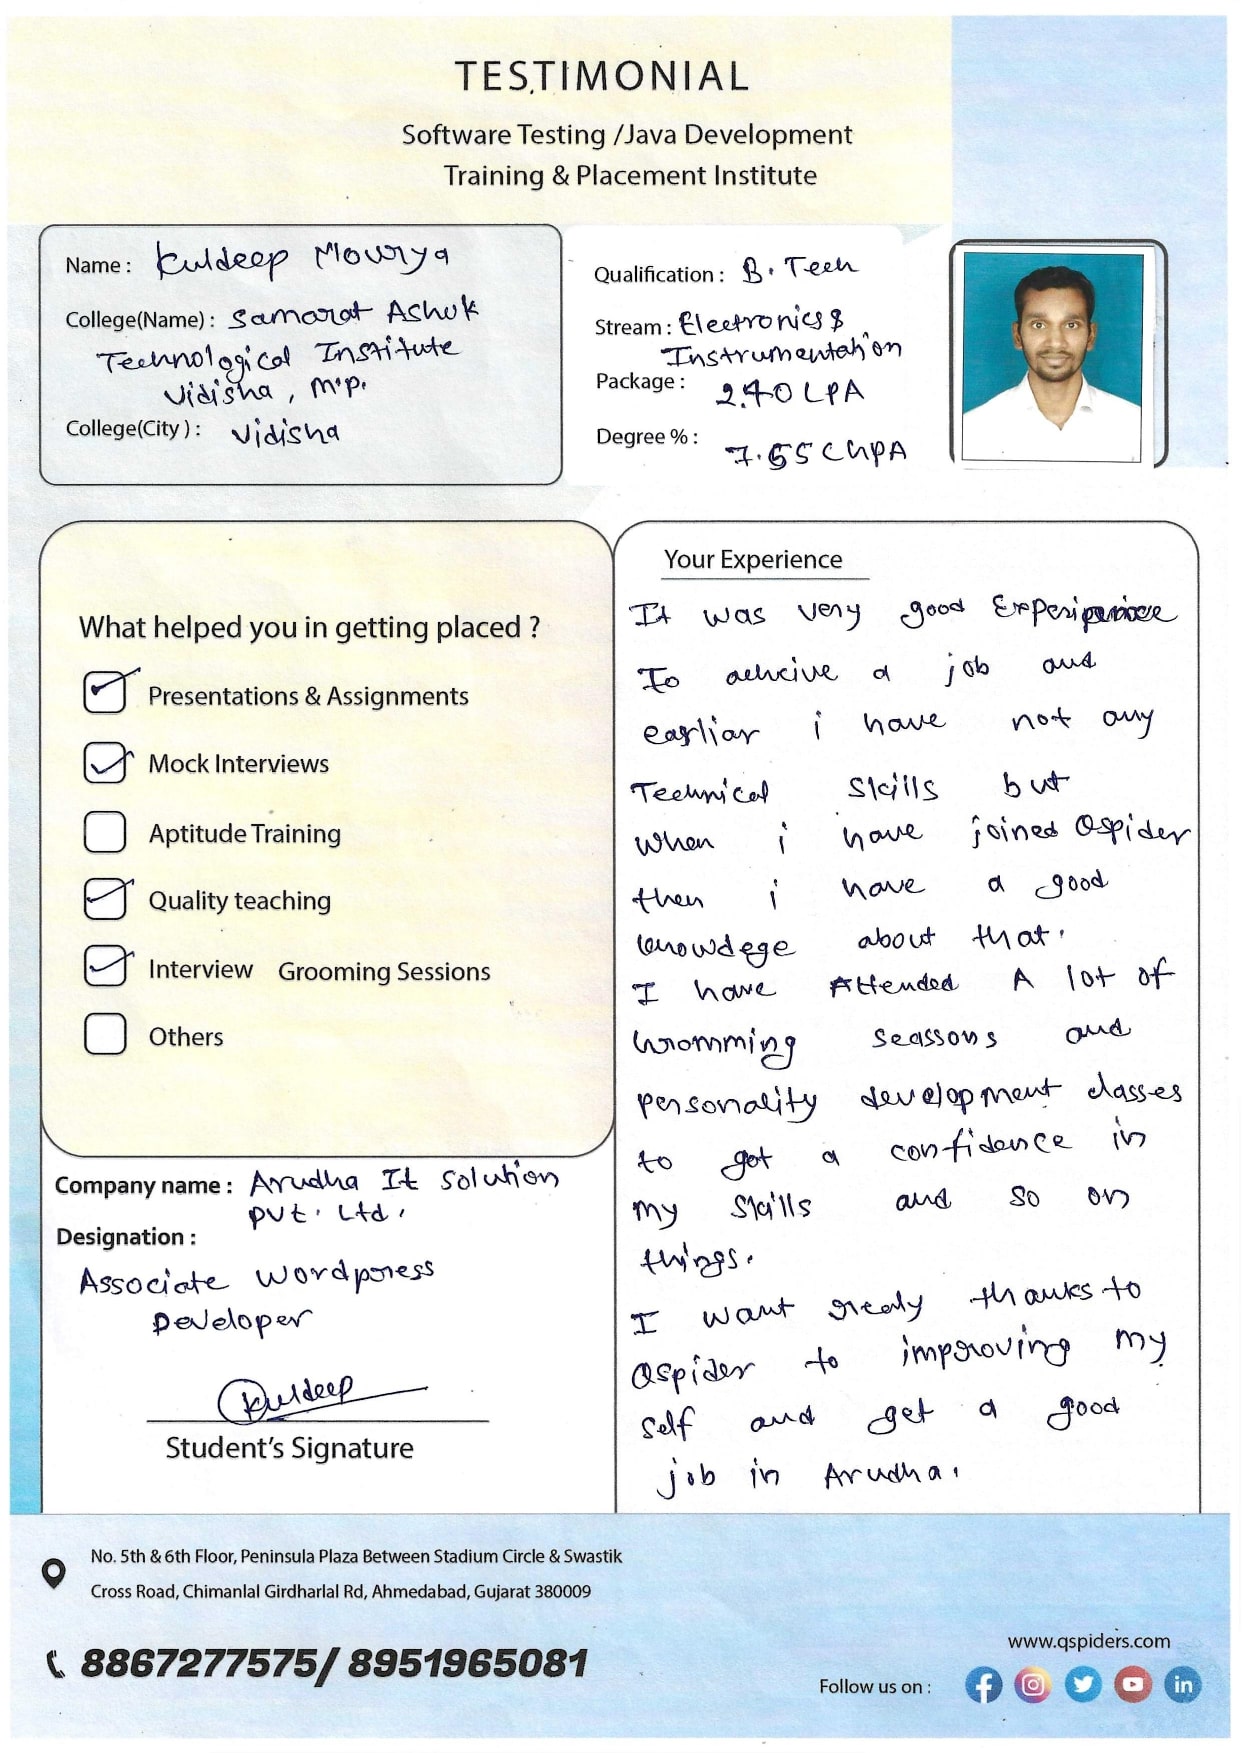 TESTIMONIAL
Software Testing /Java Development
Training & Placement Institute
Name : Kuldeep Mourya
College(Name) : Samarat Ashok
Technological Institute
Vidisha , M.P.
College(City ) : Vidisha
Qualification : B. Tech
Stream : Electronics &
Instrumentation
Package : 2.40 LPA
Degree % : 7.65 CGPA
What helped you in getting placed ?
Presentations & Assignments
Mock Interviews
Aptitude Training
Quality teaching
Interview Grooming Sessions
Others
Company name : Arudha It Solution
Pvt. Ltd.
Designation :
Associate Wordpress
Developer
Kuldeep
Student's Signature
Your Experience
It was very good
To acheive a job and
earliar i have not any
Technical Skills but
when i have joined Qspider
then i have a good
knowdege about that.
I have Attended A lot of
Gromming seassons and
personality development classes
to got a confidence in
my Skills and so on
things.
I want realy thanks to
Qspider to improving my
self and get a good
job in Arudha.
No. 5th & 6th Floor, Peninsula Plaza Between Stadium Circle & Swastik
Cross Road, Chimanlal Girdharlal Rd, Ahmedabad, Gujarat 380009
8867277575/ 8951965081
www.qspiders.com
Follow us on :